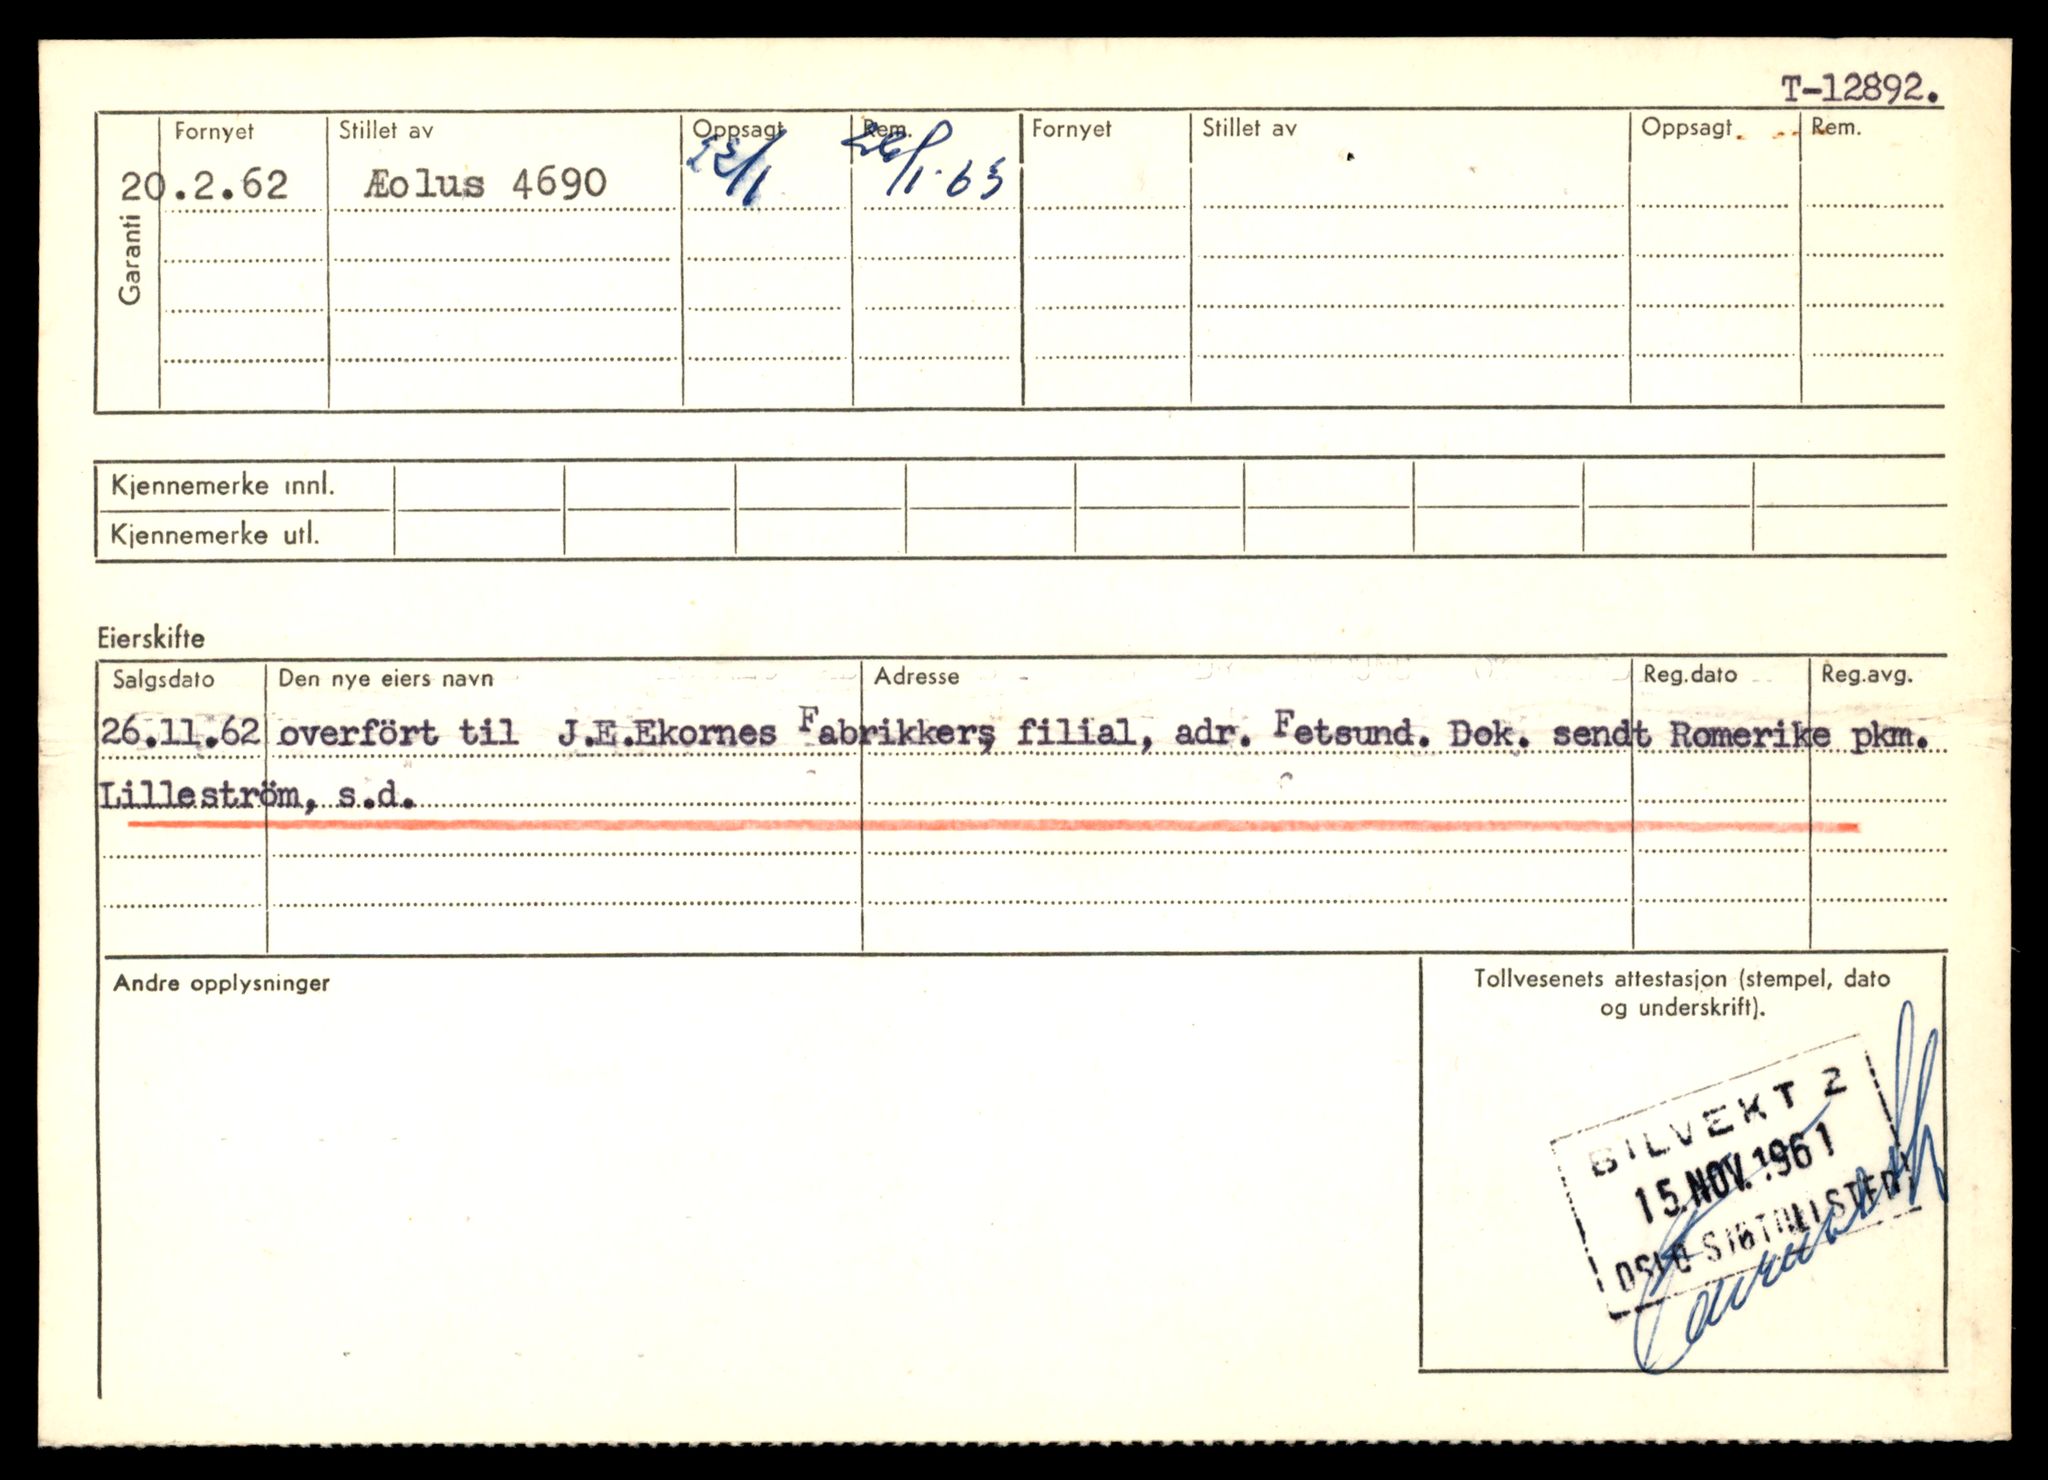 T-12892.
Fornyet Stillet av Oppsagt Rem. Fornyet Stillet av Oppsagt Rem.
20.2.62 Æolus 4690 22/1 26/1-63
Garanti
Kjennemerke innl.
Kjennemerke utl.
Eierskifte
Salgsdato Den nye eiers navn Adresse Reg.dato Reg.avg.
26.11.62 overfört til J.E.Ekornes Fabrikkers filial, adr. Fetsund. Dok. sendt Romerike pkm.
Lilleström, s.d.
Andre opplysninger
Tollvesenets attestasjon (stempel, dato
og underskrift).
BILVEKT 2
15.NOV.1961
OSLO SJØTOLLSTED